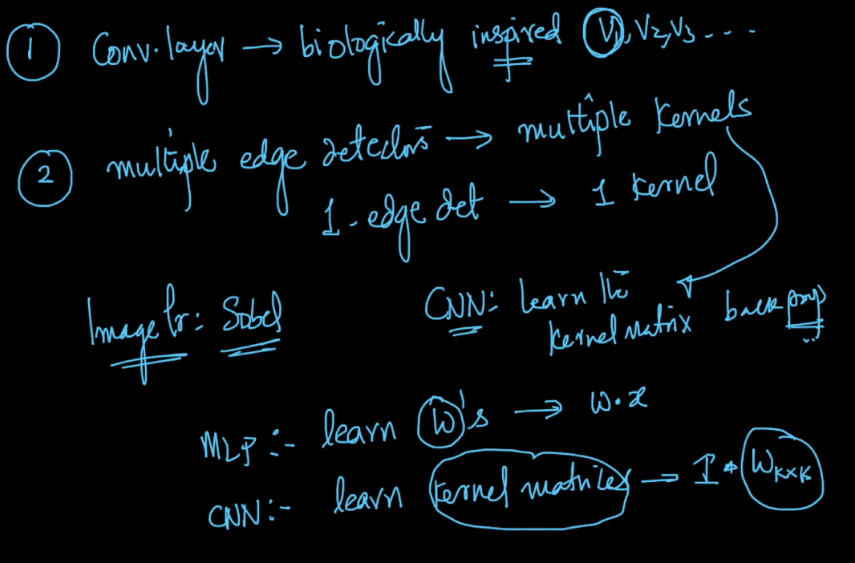 1 Conv. layer → biologically inspired V1, V2, V3 - - - .
2 multiple edge detectors → multiple kernels
1 - edge det → 1 kernel
Image Pr: Sobel
CNN: learn the
kernel matrix backprop
MLP :- learn W's → W.x
CNN :- learn kernel matrices → I * W K×K